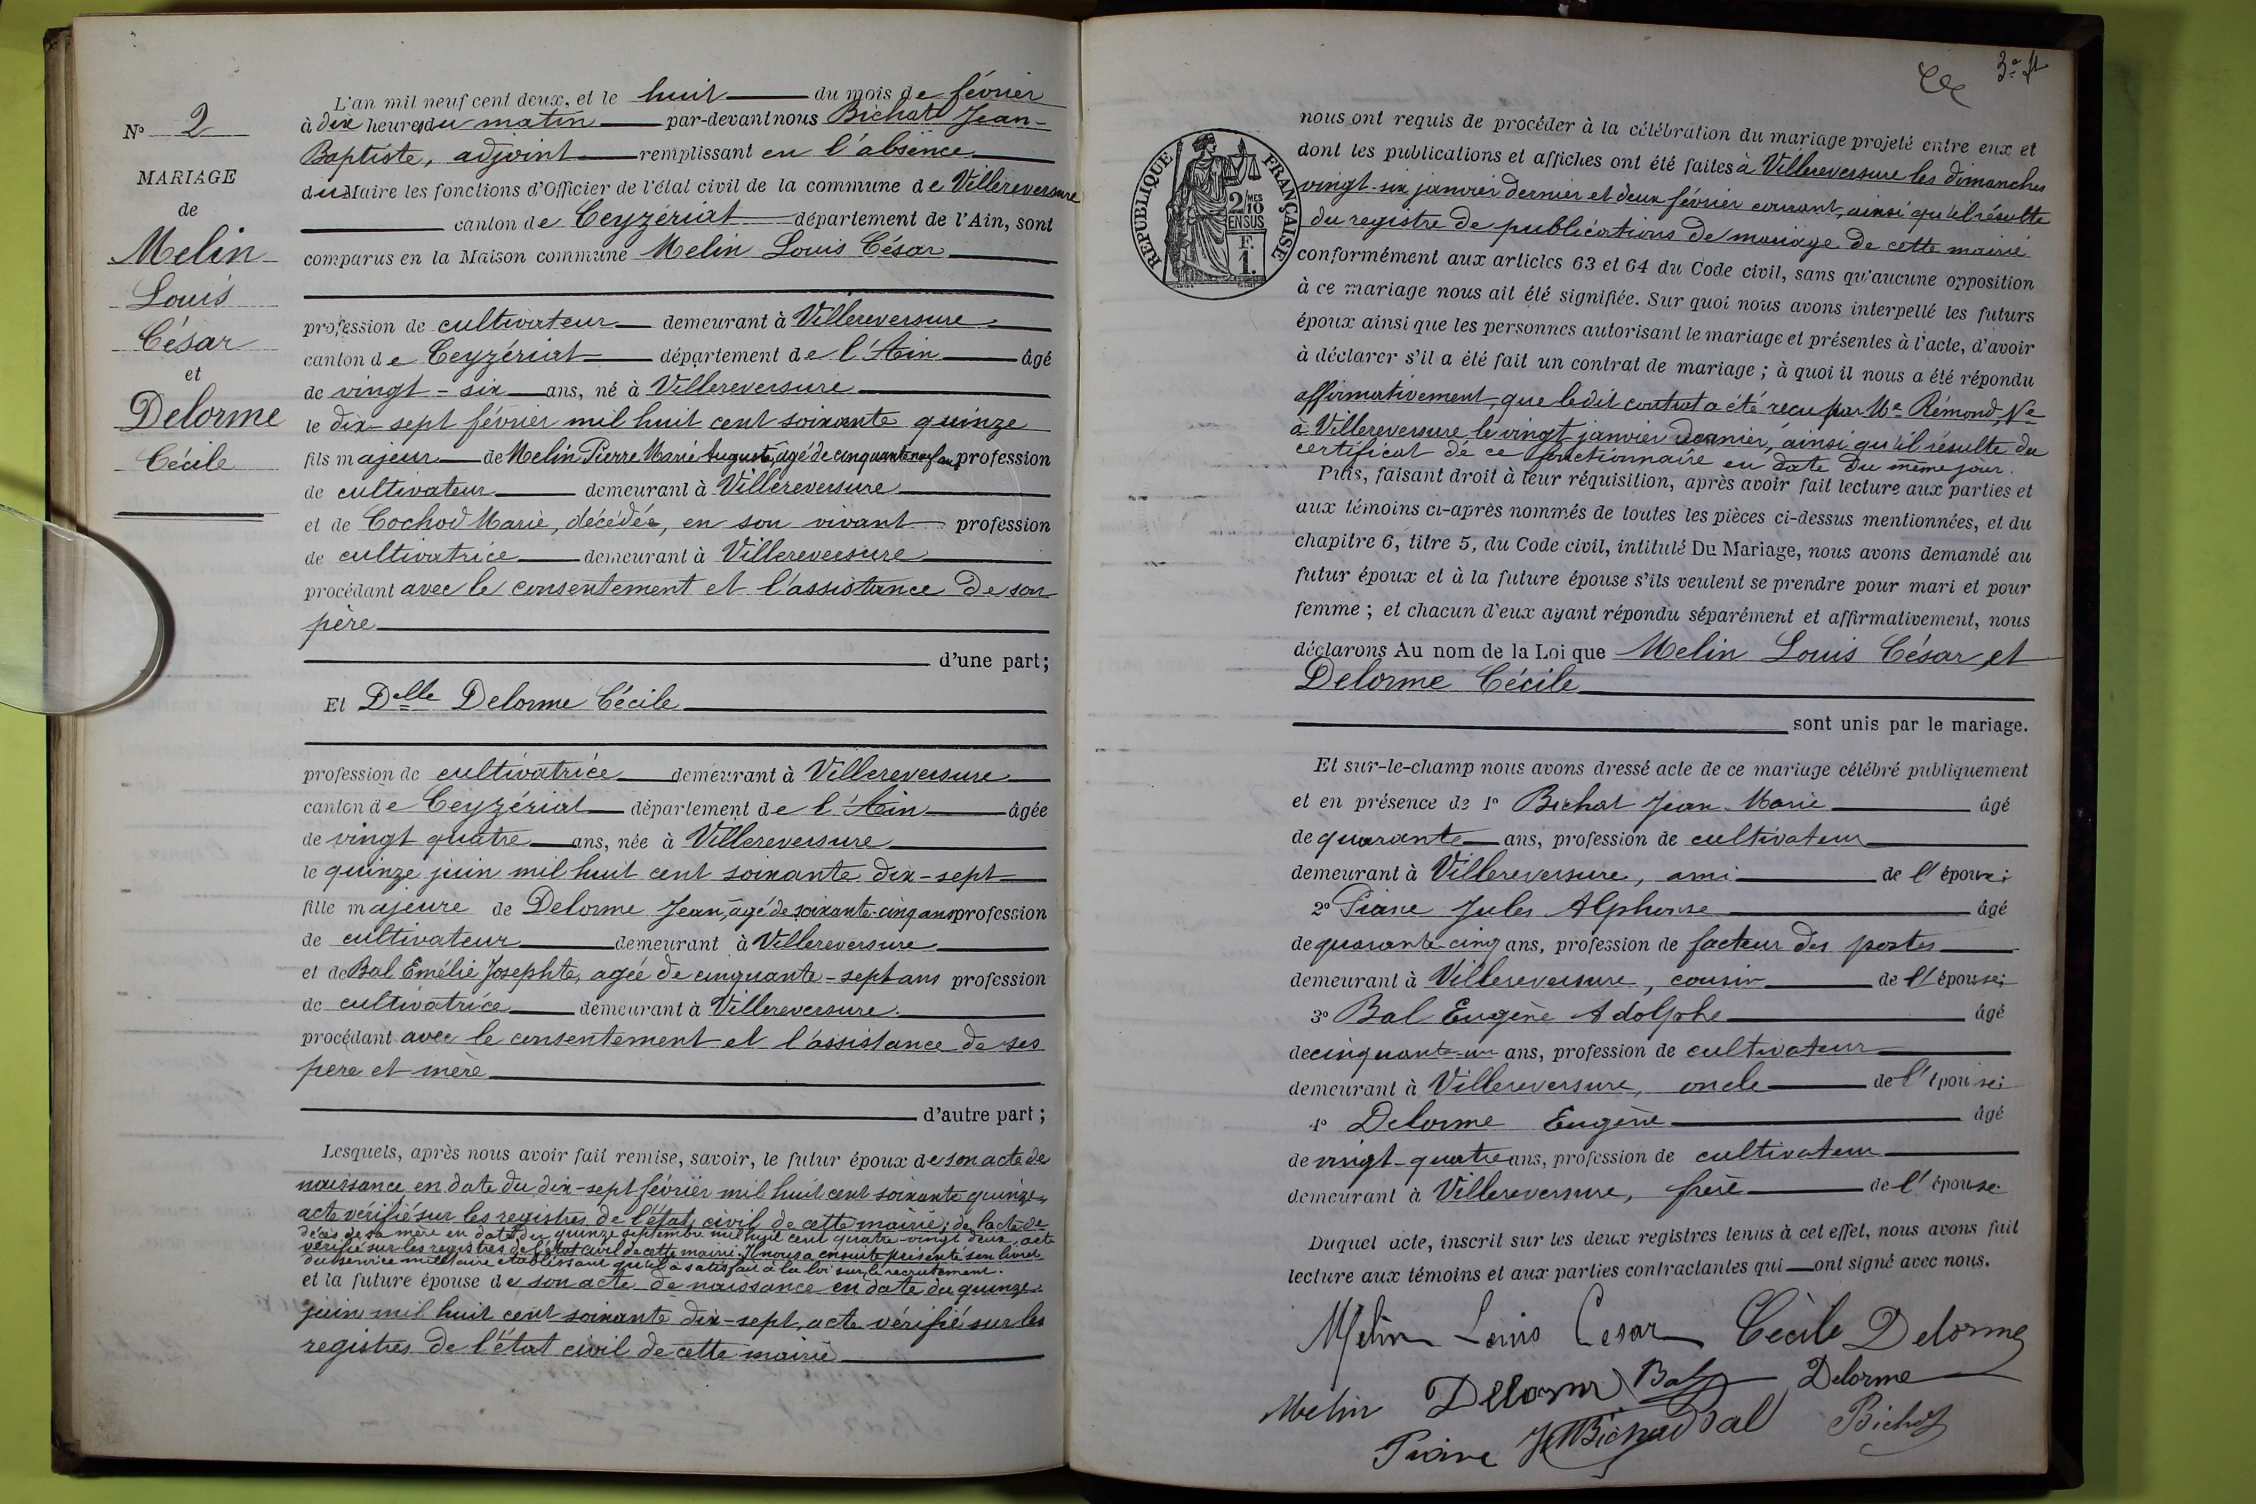 N° 2
MARIAGE
de
Melin
Louis
César
et
Delorme
Cécile
L'an mil neuf cent deux, et le huit du mois de février
à dix heures du matin par-devant nous Bichat Jean-
Baptiste, adjoint remplissant en l'absence
du Maire les fonctions d'Officier de l'état civil de la commune de Villereversure
canton de Ceyzériat département de l'Ain, sont
comparus en la Maison commune Melin Louis César
profession de cultivateur demeurant à Villereversure
canton de Ceyzériat département de l'Ain âgé
de vingt-six ans, né à Villereversure
le dix-sept février mil huit cent soixante quinze
fils majeur de Melin Pierre Marie Auguste, âgé de cinquante neuf ans, profession
de cultivateur demeurant à Villereversure
et de Cochod Marie, décédée, en son vivant profession
de cultivatrice demeurant à Villereversure
procédant avec le consentement et l'assistance de son
père
d'une part;
Et Delle Delorme Cécile
profession de cultivatrice demeurant à Villereversure
canton de Ceyzériat département de l'Ain âgée
de vingt quatre ans, née à Villereversure
le quinze juin mil huit cent soixante dix-sept
fille majeure de Delorme Jean, âgé de soixante-cinq ans profession
de cultivateur demeurant à Villereversure
et de Bal Emélie Josephte, agée de cinquante-sept ans profession
de cultivatrice demeurant à Villereversure.
procédant avec le consentement et l'assistance de ses
père et mère
d'autre part;
Lesquels, après nous avoir fait remise, savoir, le futur époux de son acte de
naissance en date du dix-sept février mil huit cent soixante quinze,
acte vérifié sur les registres de l'état civil de cette mairie; de l'acte de
décès de sa mère en date du quinze septembre mil huit cent quatre-vingt deux, acte
vérifié sur les registres de l'état civil de cette mairie. Il nous a ensuite présenté son livret
du service militaire établissant qu'il a satisfait à la loi sur le recrutement.
et la future épouse de son acte de naissance en date du quinze
juin mil huit cent soixante dix-sept, acte vérifié sur les
registres de l'état civil de cette mairie
RÉPUBLIQUE FRANÇAISE
2/MES
10
EN SUS
F.
1.
nous ont requis de procéder à la célébration du mariage projeté entre eux et
dont les publications et affiches ont été faites à Villereversure les dimanches
vingt-six janvier dernier et deux février courant, ainsi qu'il résulte
du registre de publications de mariage de cette mairie
conformément aux articles 63 et 64 du Code civil, sans qu'aucune opposition
à ce mariage nous ait été signifiée. Sur quoi nous avons interpellé les futurs
époux ainsi que les personnes autorisant le mariage et présentes à l'acte, d'avoir
à déclarer s'il a été fait un contrat de mariage; à quoi il nous a été répondu
affirmativement, que ledit contrat a été reçu par Me Rémond, Ne
à Villereversure le vingt janvier dernier, ainsi qu'il résulte du
certificat de ce fonctionnaire en date du même jour.
Puis, faisant droit à leur réquisition, après avoir fait lecture aux parties et
aux témoins ci-après nommés de toutes les pièces ci-dessus mentionnées, et du
chapitre 6, titre 5, du Code civil, intitulé Du Mariage, nous avons demandé au
futur époux et à la future épouse s'ils veulent se prendre pour mari et pour
femme; et chacun d'eux ayant répondu séparément et affirmativement, nous
déclarons Au nom de la Loi que Melin Louis César et
Delorme Cécile
sont unis par le mariage.
Et sur-le-champ nous avons dressé acte de ce mariage célébré publiquement
et en présence de 1° Bichat Jean Marie âgé
de quarante ans, profession de cultivateur
demeurant à Villereversure, ami de l'époux;
2° Piane Jules Alphonse âgé
de quarante-cinq ans, profession de facteur des postes
demeurant à Villereversure, cousin de l'épouse;
3° Bal Eugène Adolphe âgé
de cinquante-un ans, profession de cultivateur
demeurant à Villereversure, oncle de l'épouse;
4° Delorme Eugène âgé
de vingt-quatre ans, profession de cultivateur
demeurant à Villereversure, frère de l'épouse.
Duquel acte, inscrit sur les deux registres tenus à cet effet, nous avons fait
lecture aux témoins et aux parties contractantes qui ont signé avec nous.
Melin Louis Cesar Cècile Delorme
Melin Delorme Bal Delorme
Piane JM Bichat Bal Bichat